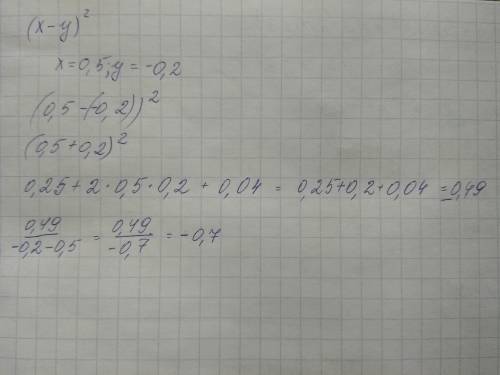 (x-y)²
x=0,5; y=-0,2
(0,5-(-0,2))²
(0,5+0,2)²
0,25+2·0,5·0,2+0,04 = 0,25+0,2+0,04 = 0,49
0,49/(-0,2-0,5) = 0,49/-0,7 = -0,7